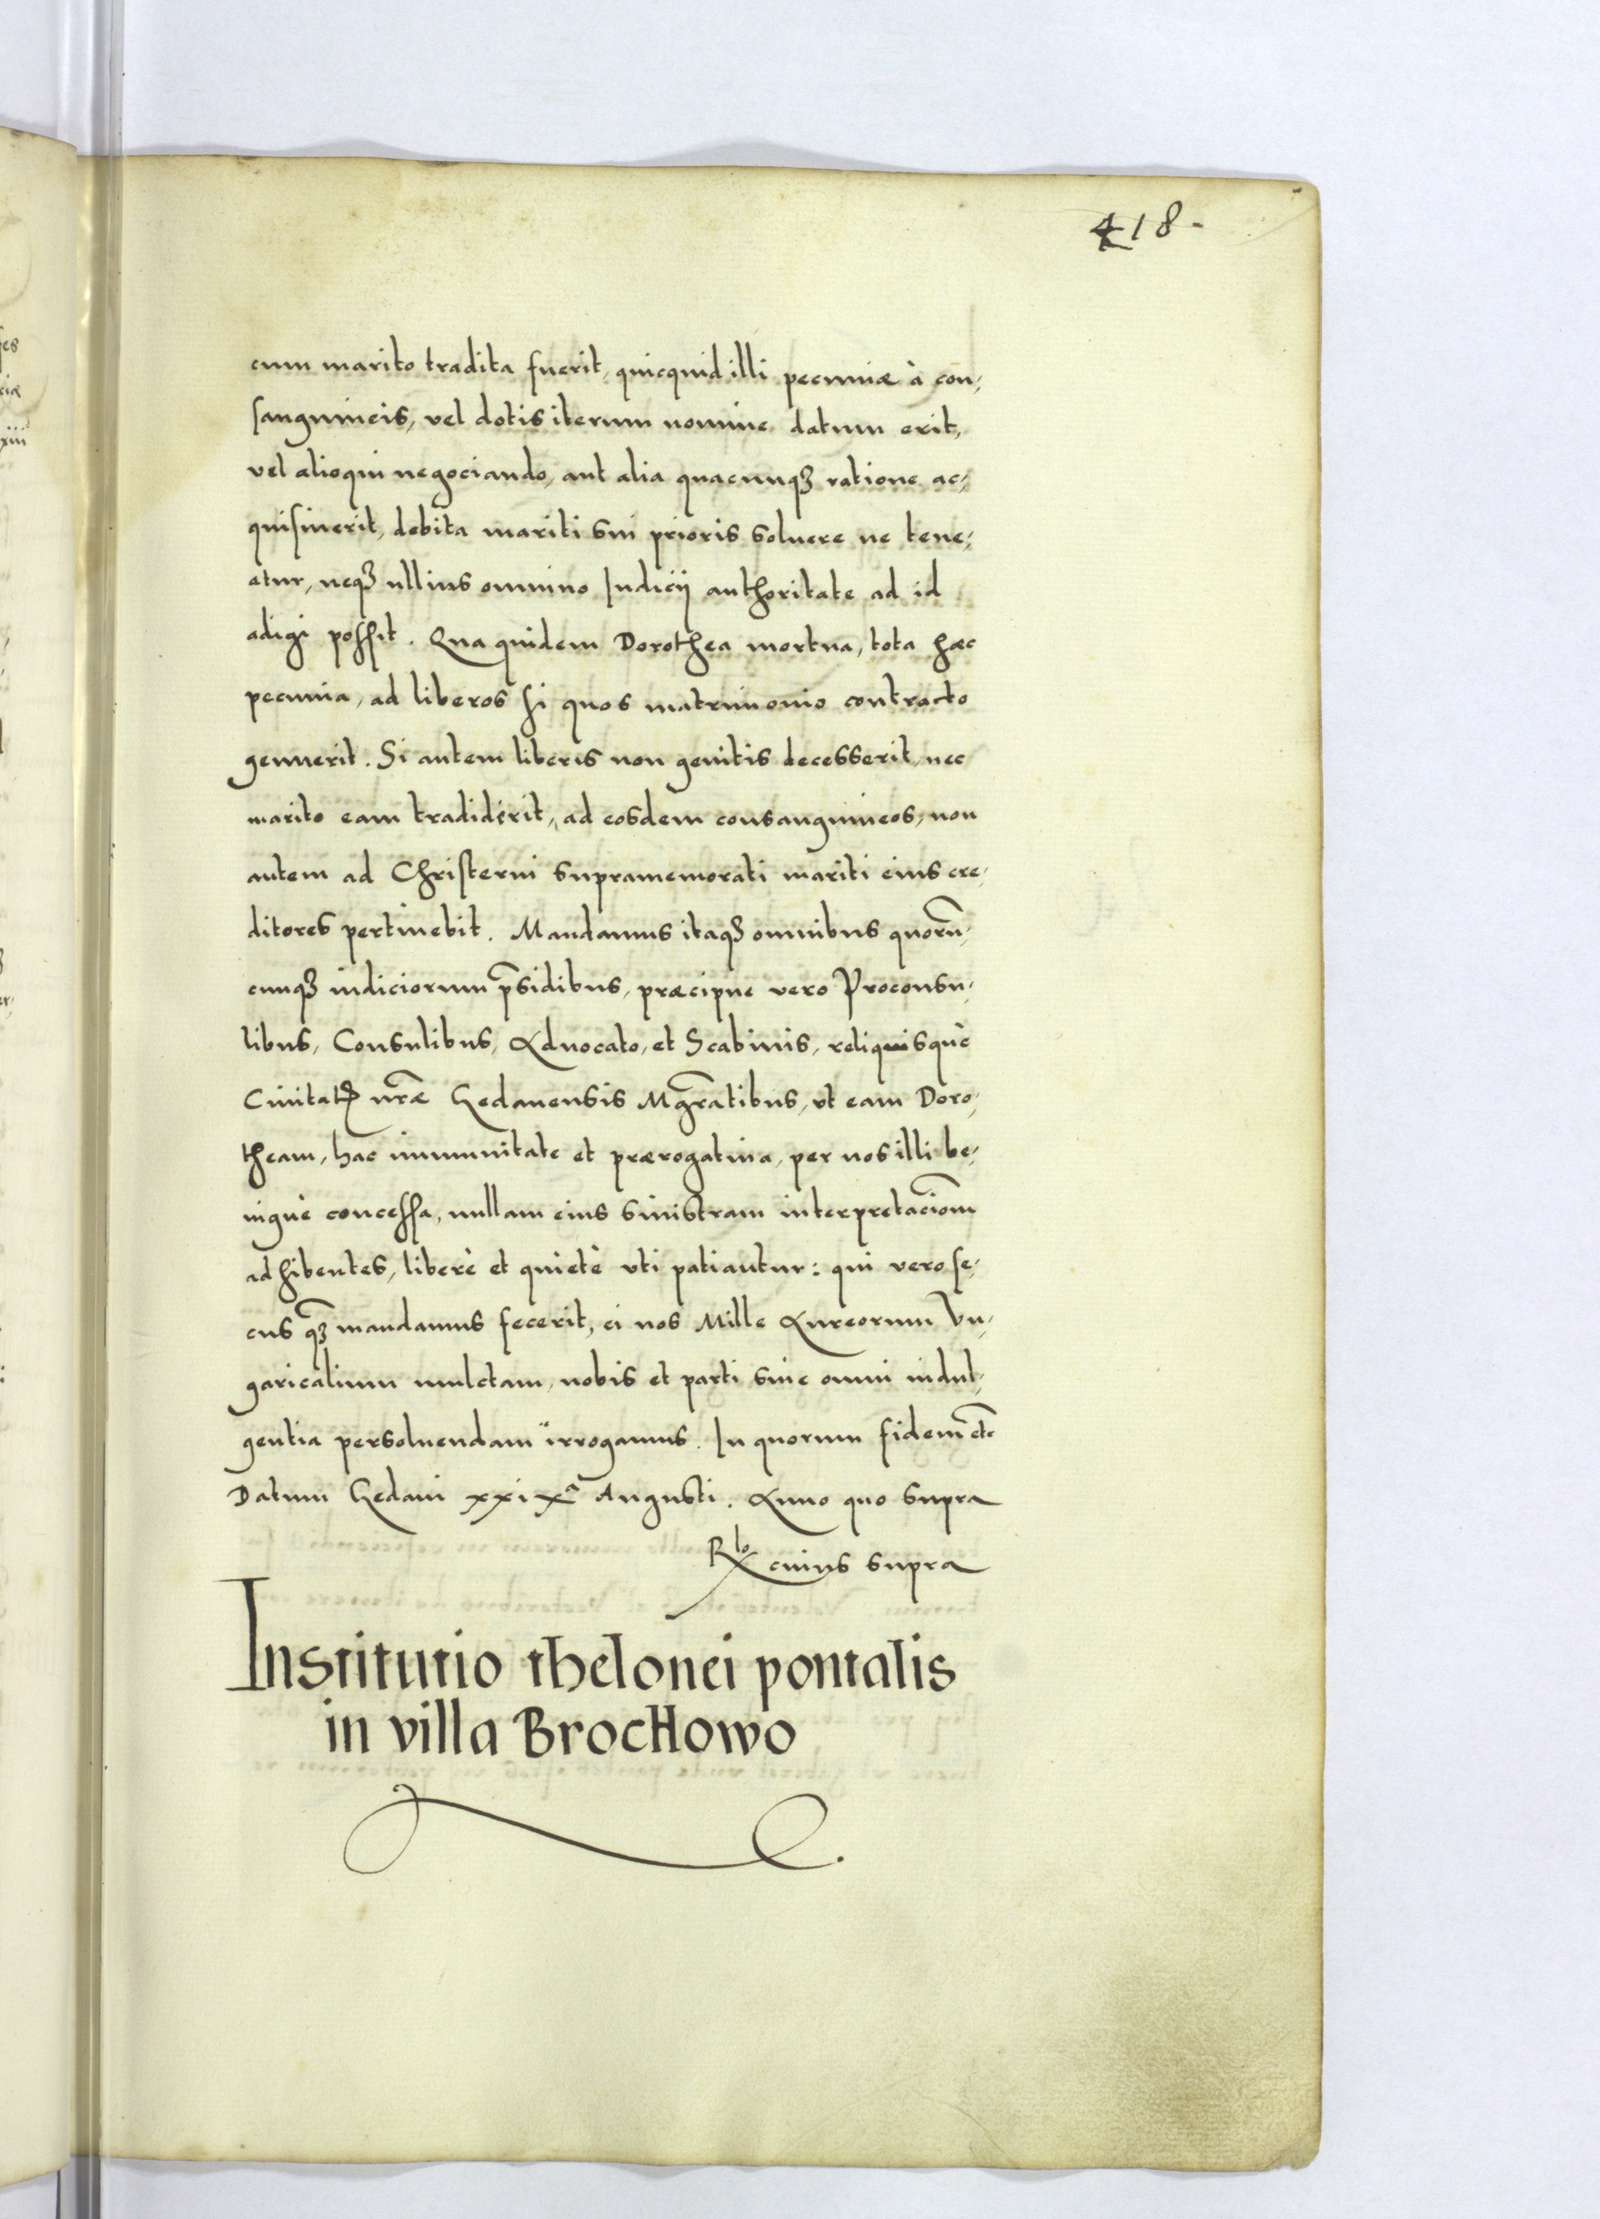 418-
cum marito tradita fuerit, quicquid illi pecuniæ à con,
sanguineis, vel dotis iterum nomine datum erit,
vel alioqui negociando, aut alia quacunqȝ ratione ac,
quisiuerit, debita mariti sui prioris soluere ne tene,
atur, neqȝ ullius omnino Iudicij authoritate ad id
adigi possit. Qua quidem Dorothea mortua, tota hæc
pecunia, ad liberos si quos matrimonio contracto
genuerit. Si autem liberis non genitis decesserit, nec
marito eam tradiderit, ad eosdem consanguineos, non
autem ad Christerni supramemorati mariti eius cre,
ditores pertinebit. Mandamus itaqȝ omnibus quorū,
cunqȝ iudiciorum p̄sidibus, præcipue vero Proconsu,
libus, Consulibus, Aduocato, et Scabinis, reliquisquè
Ciuitatꝭ nr̄æ Gedanensis Mgr̄atibus, ut eam Doro,
theam, hac immunitate et prærogatiua, per nos illi be,
nignè concessa, nullam eius sinistram interpretacio͞m
adhibentes, liberè et quietè uti patiantur: qui vero se,
cus qȝ̄ mandamus fecerit, ei nos Mille Aureorum Vn,
garicalium mulctam, nobis et parti sine omni indul,
gentia persoluendam irrogamus. In quorum fidem etc
Datum Gedani xxixª Augusti. Anno quo supra
Rlo cuius supra
Institutio thelonei pontalis
in villa Brochowo